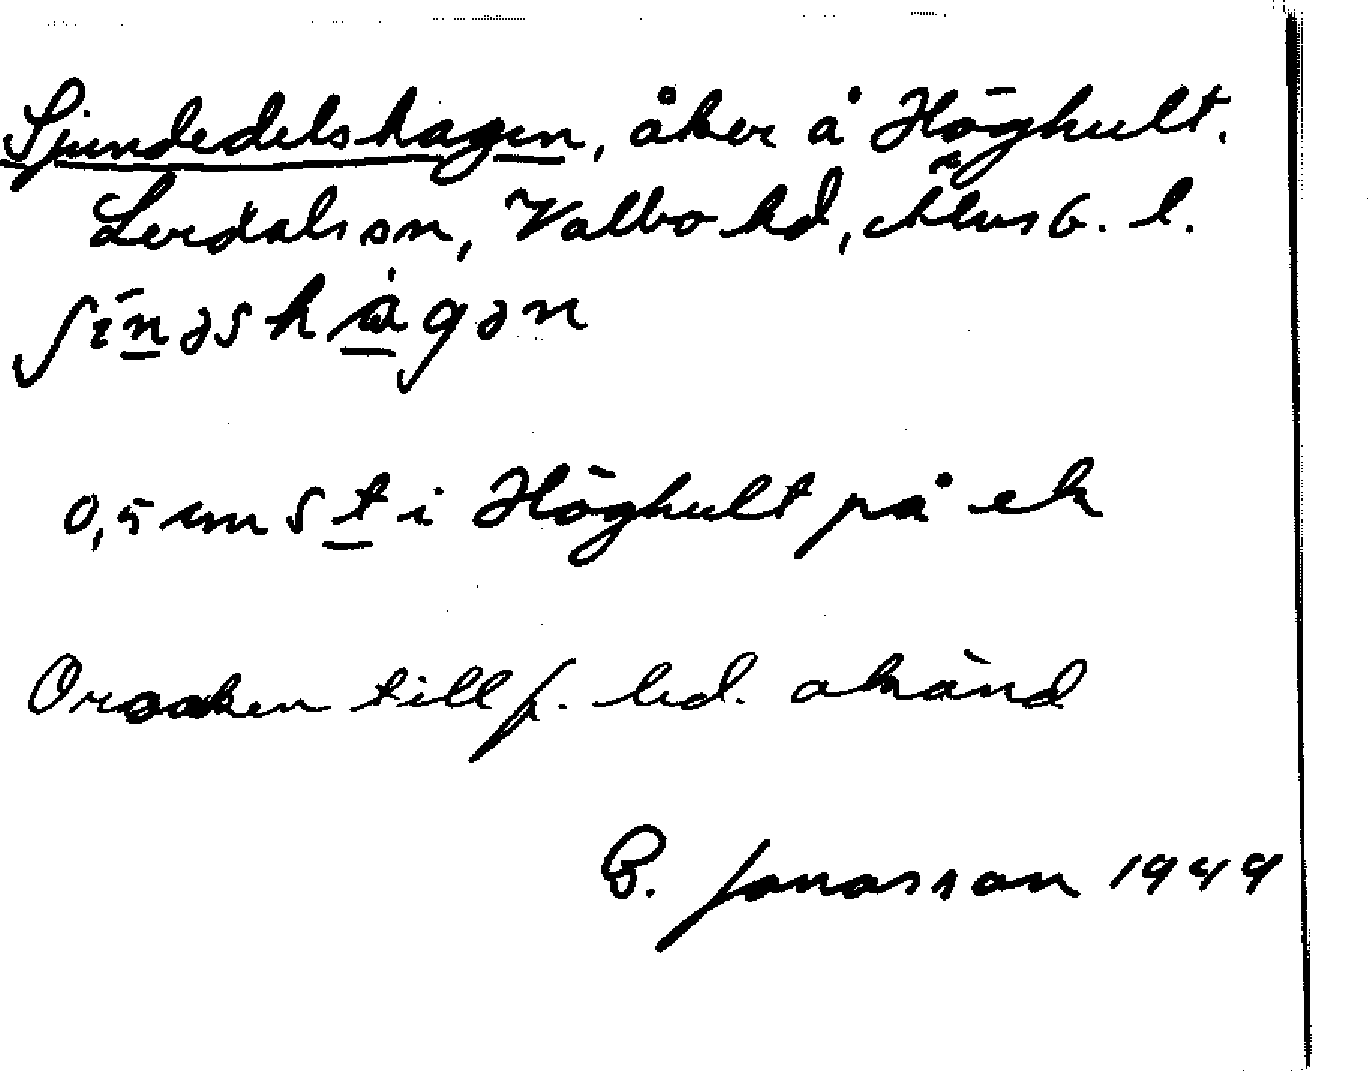 Sjundedelshagen, åker å Höghult.
Lerdals sn, Valbo hd, Älvsb. l.
ʃinəshagən
0,5 km S t i Höghult på ek
Orsaken till f. led. okänd
B. Jonasson 1949